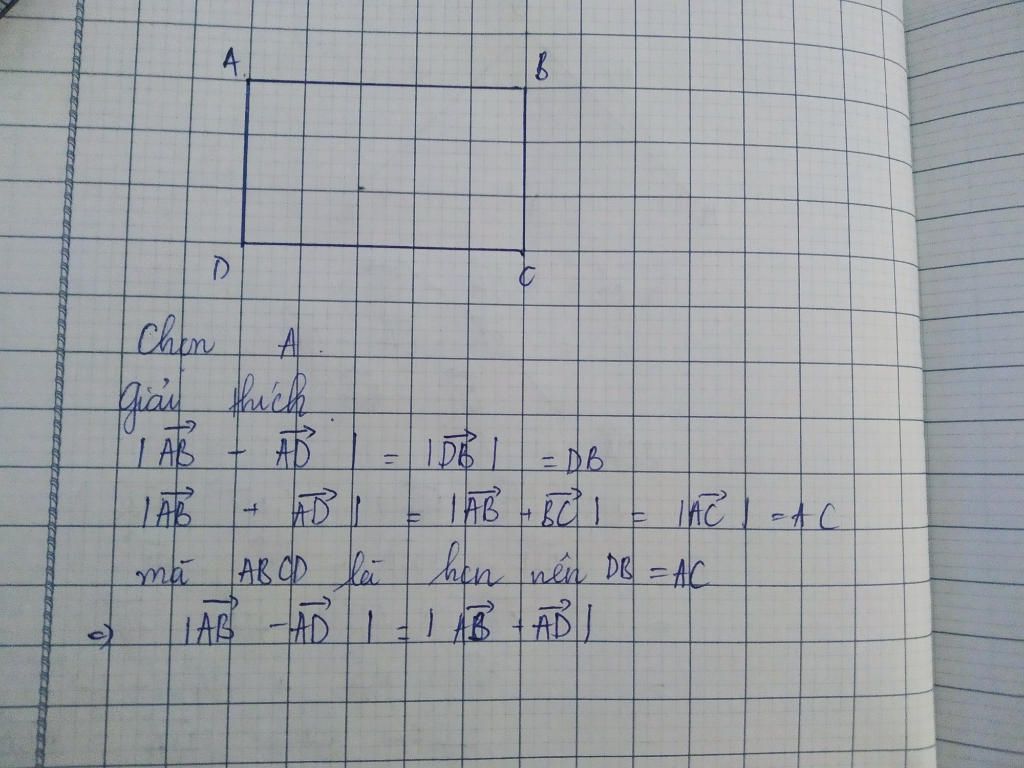 A B
D C
Chọn A.
Giải thích.
|\overrightarrow{AB} - \overrightarrow{AD}| = |\overrightarrow{DB}| = DB
|\overrightarrow{AB} + \overrightarrow{AD}| = |\overrightarrow{AB} + \overrightarrow{BC}| = |\overrightarrow{AC}| = AC
mà ABCD là hcn nên DB = AC
=) |\overrightarrow{AB} - \overrightarrow{AD}| = |\overrightarrow{AB} + \overrightarrow{AD}|